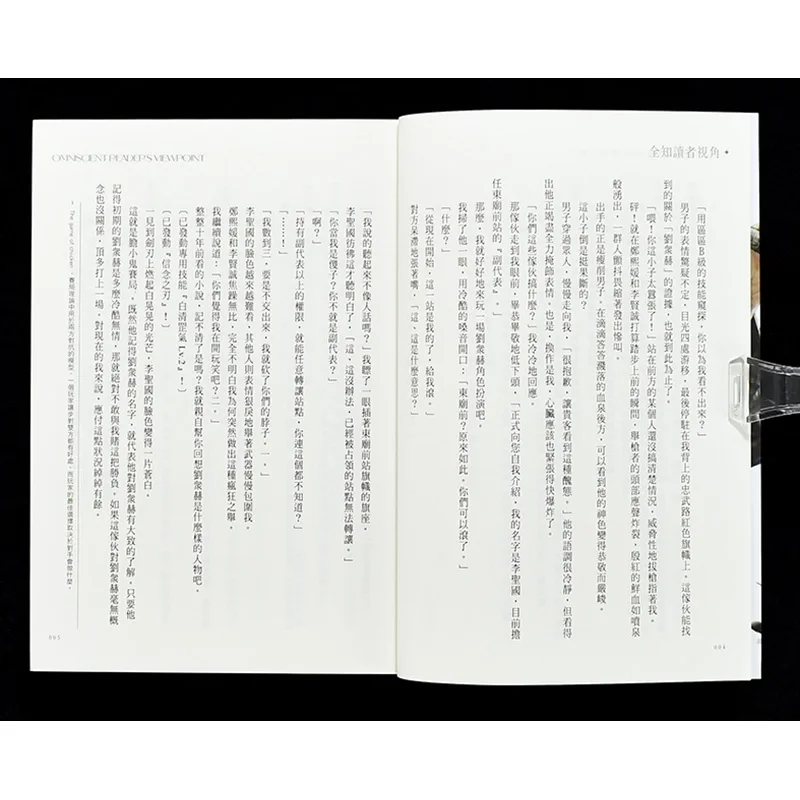 全知讀者視角
「用區區B級的技能窺探，你以為我看不出來？」
男子的表情驚疑不定，目光四處游移，最後停駐在我背上的忠武路紅色旗幟上。這傢伙能找
到的關於「劉衆赫」的證據，也就到此為止了。
「喂！你這小子太囂張了！」站在前方的某個人還沒搞清楚情況，威脅性地拔槍指著我。
砰！就在鄭熙媛和李賢誠打算踏步上前的瞬間，舉槍者的頭部應聲炸裂，殷紅的鮮血如噴泉
般湧出，一群人顫抖畏縮著發出慘叫。
出手的正是瘦削男子。在滴滴答答濺落的血泉後方，可以看到他的神色變得恭敬而嚴峻。
這小子倒是挺果斷的？
男子穿過眾人，慢慢走向我，「很抱歉，讓貴客看到這種醜態。」他的語調很冷靜，但看得
出他正竭盡全力掩飾表情。也是，換作是我，心臟應該也緊張得快爆炸了。
「你們這些傢伙搞什麼？」我冷冷地回應。
那傢伙走到我眼前，畢恭畢敬地低下頭，「正式向您自我介紹，我的名字是李聖國，目前擔
任東廟前站的『副代表』。」
那麼，我就好好地來玩一場劉衆赫角色扮演吧。
我掃了他一眼，用冷酷的嗓音開口：「東廟前？原來如此。你們可以滾了。」
「什麼？」
「從現在開始，這一站是我的了，給我滾。」
對方呆滯地張著嘴，「這、這是什麼意思？」
004
OMNISCIENT READER'S VIEWPOINT
「我說的聽起來不像人話嗎？」我瞟了一眼插著東廟前站旗幟的旗座。
李聖國彷彿這才聽明白了，「這、這沒辦法，已經被占領的站點無法轉讓。」
「你當我是傻子？你不就是副代表？」
「啊？」
「持有副代表以上的權限，就能任意轉讓站點，你連這個都不知道？」
「……！」
「我數到三，要是不交出來，我就砍了你們的脖子。一。」
李聖國的臉色越來越難看，其他人則表情狠戾地舉著武器慢慢包圍我。
鄭熙媛和李賢誠焦躁無比，完全不明白我為何突然做出這種瘋狂之舉。
我繼續說道：「你們覺得我在開玩笑吧？二。」
整整十年前看的小說，記不清了是嗎？我就親自幫你回想劉衆赫是什麼樣的人物吧。
〔已發動專用技能『白清罡氣Lv.2』！〕
〔已發動『信念之刃』！〕
一見到劍刃上燃起白晃晃的光芒，李聖國的臉色變得一片蒼白。
這就是膽小鬼賽局。既然他記得劉衆赫的名字，就代表他對劉衆赫有大致的了解，只要他
記得初期的劉衆赫是多麼冷酷無情，那就絕對不敢與我賭這把勝負。如果這傢伙對劉衆赫毫無概
念也沒關係，頂多打上一場，對現在的我來說，應付這點狀況綽綽有餘。
The game of chicken，賽局理論中用於兩方對抗的模型，一個玩家讓步對雙方都有好處，而玩家的最佳選擇取決於對手會做什麼。
005